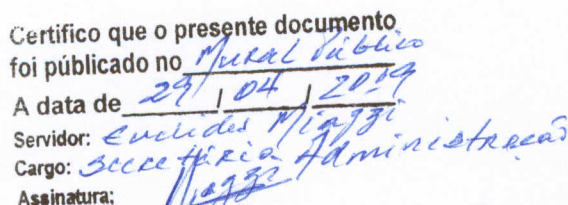 Certifico que o presente documento
foi públicado no Mural Público
A data de 29 / 04 / 2009
Servidor: Euclides Miazzi
Cargo: Secretária Administração
Assinatura: Miazzi